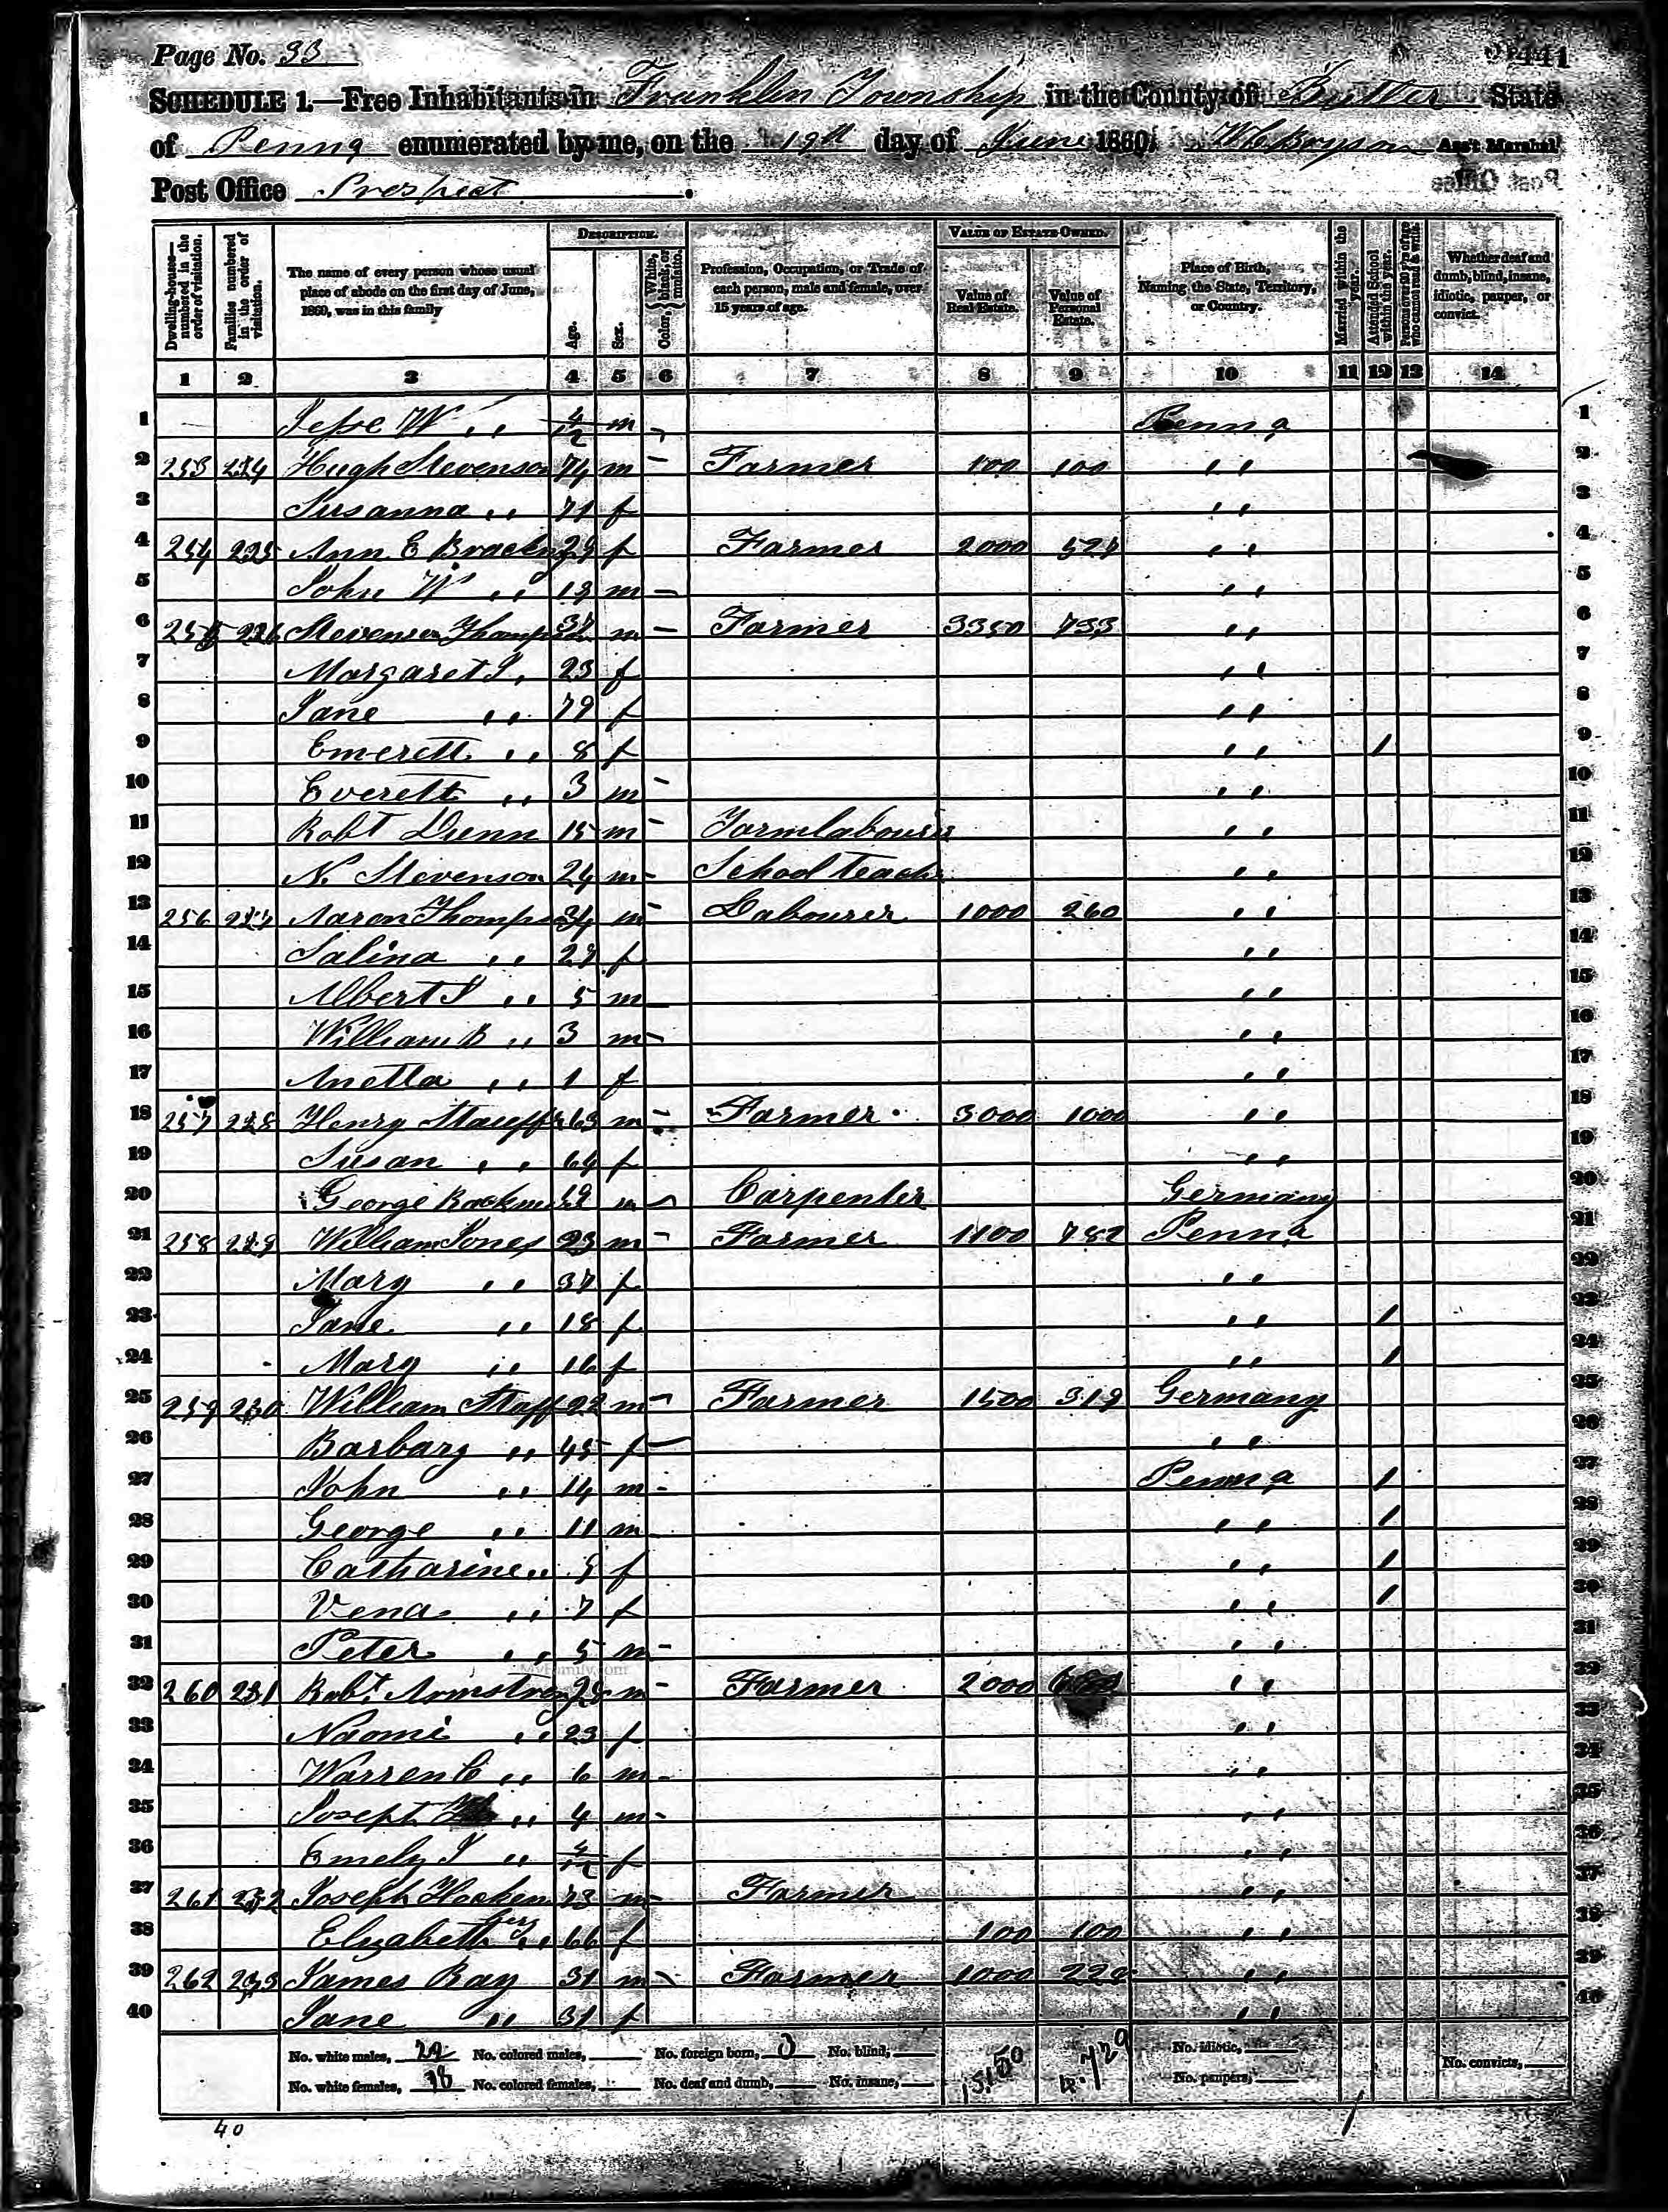 Page No. 33
441
SCHEDULE 1.—Free Inhabitants in Franklin Township in the County of Butler State
of Penna enumerated by me, on the 19th day of June 1860. Ass't Marshal
Post Office Prospect.
Dwelling-houses— numbered in the order of visitation.
Families numbered in the order of visitation.
The name of every person whose usual place of abode on the first day of June, 1860, was in this family
DESCRIPTION.
Age.
Sex.
Color, White, black, or mulatto.
Profession, Occupation, or Trade of each person, male and female, over 15 years of age.
VALUE OF ESTATE OWNED.
Value of Real Estate.
Value of Personal Estate.
Place of Birth, Naming the State, Territory, or Country.
Married within the year.
Attended School within the year.
Persons over 20 y'rs of age who cannot read & write.
Whether deaf and dumb, blind, insane, idiotic, pauper, or convict.
1 2 3 4 5 6 7 8 9 10 11 12 13 14
1 Jesse W " m Penna 1
2 253 224 Hugh Stevenson 74 m Farmer 100 100 " 2
3 Susanna " 71 f " 3
4 254 225 Ann E f Farmer 2000 " 4
5 John W " 13 m " 5
6 255 226 Stevenson Thompson m Farmer 3350 733 " 6
7 Margaret J " 23 f " 7
8 Jane " 79 f " 8
9 Emerett " 8 f " / 9
10 Everett " 3 m " 10
11 Robt Dunn 15 m Farmlabourer " 11
12 N. Stevenson 24 m School Teacher " 12
13 256 227 Aaron Thompson 34 m Labourer 1000 260 " 13
14 Salina " f " 14
15 Albert J " 5 m " 15
16 William B " 3 m " 16
17 Anetta " 1 f " 17
18 257 228 Henry Stauffer 63 m Farmer 3000 1000 " 18
19 Susan " 64 f " 19
20 George m Carpenter Germany 20
21 258 229 William Jones m Farmer 1100 782 Penna 21
22 Mary " 37 f " 22
23 Jane " 18 f " / 23
24 Mary " 16 f " / 24
25 259 230 William Staff 22 m Farmer 1500 319 Germany 25
26 Barbary " 45 f " 26
27 John " 14 m Penna / 27
28 George " 11 m " / 28
29 Catharine " f " / 29
30 Vena " 7 f " / 30
31 Peter " 5 m " 31
32 260 231 Robt. Armstrong 28 m Farmer 2000 " 32
33 Naomi " 23 f " 33
34 Warren C " 6 m " 34
35 Joseph " 4 m " 35
36 Emely J " f " 36
37 261 232 Joseph 73 m Farmer " 37
38 Elizabeth " 66 f 100 100 " 38
39 262 233 James Ray 31 m Farmer 1000 228 " 39
40 Jane " 31 f " 40
No. white males, 22 No. colored males, No. foreign born, No. blind, 15,150 No. idiotic, No. convicts,
No. white females, 18 No. colored females, No. deaf and dumb, No. insane, No. paupers,
40
MyFamily.com